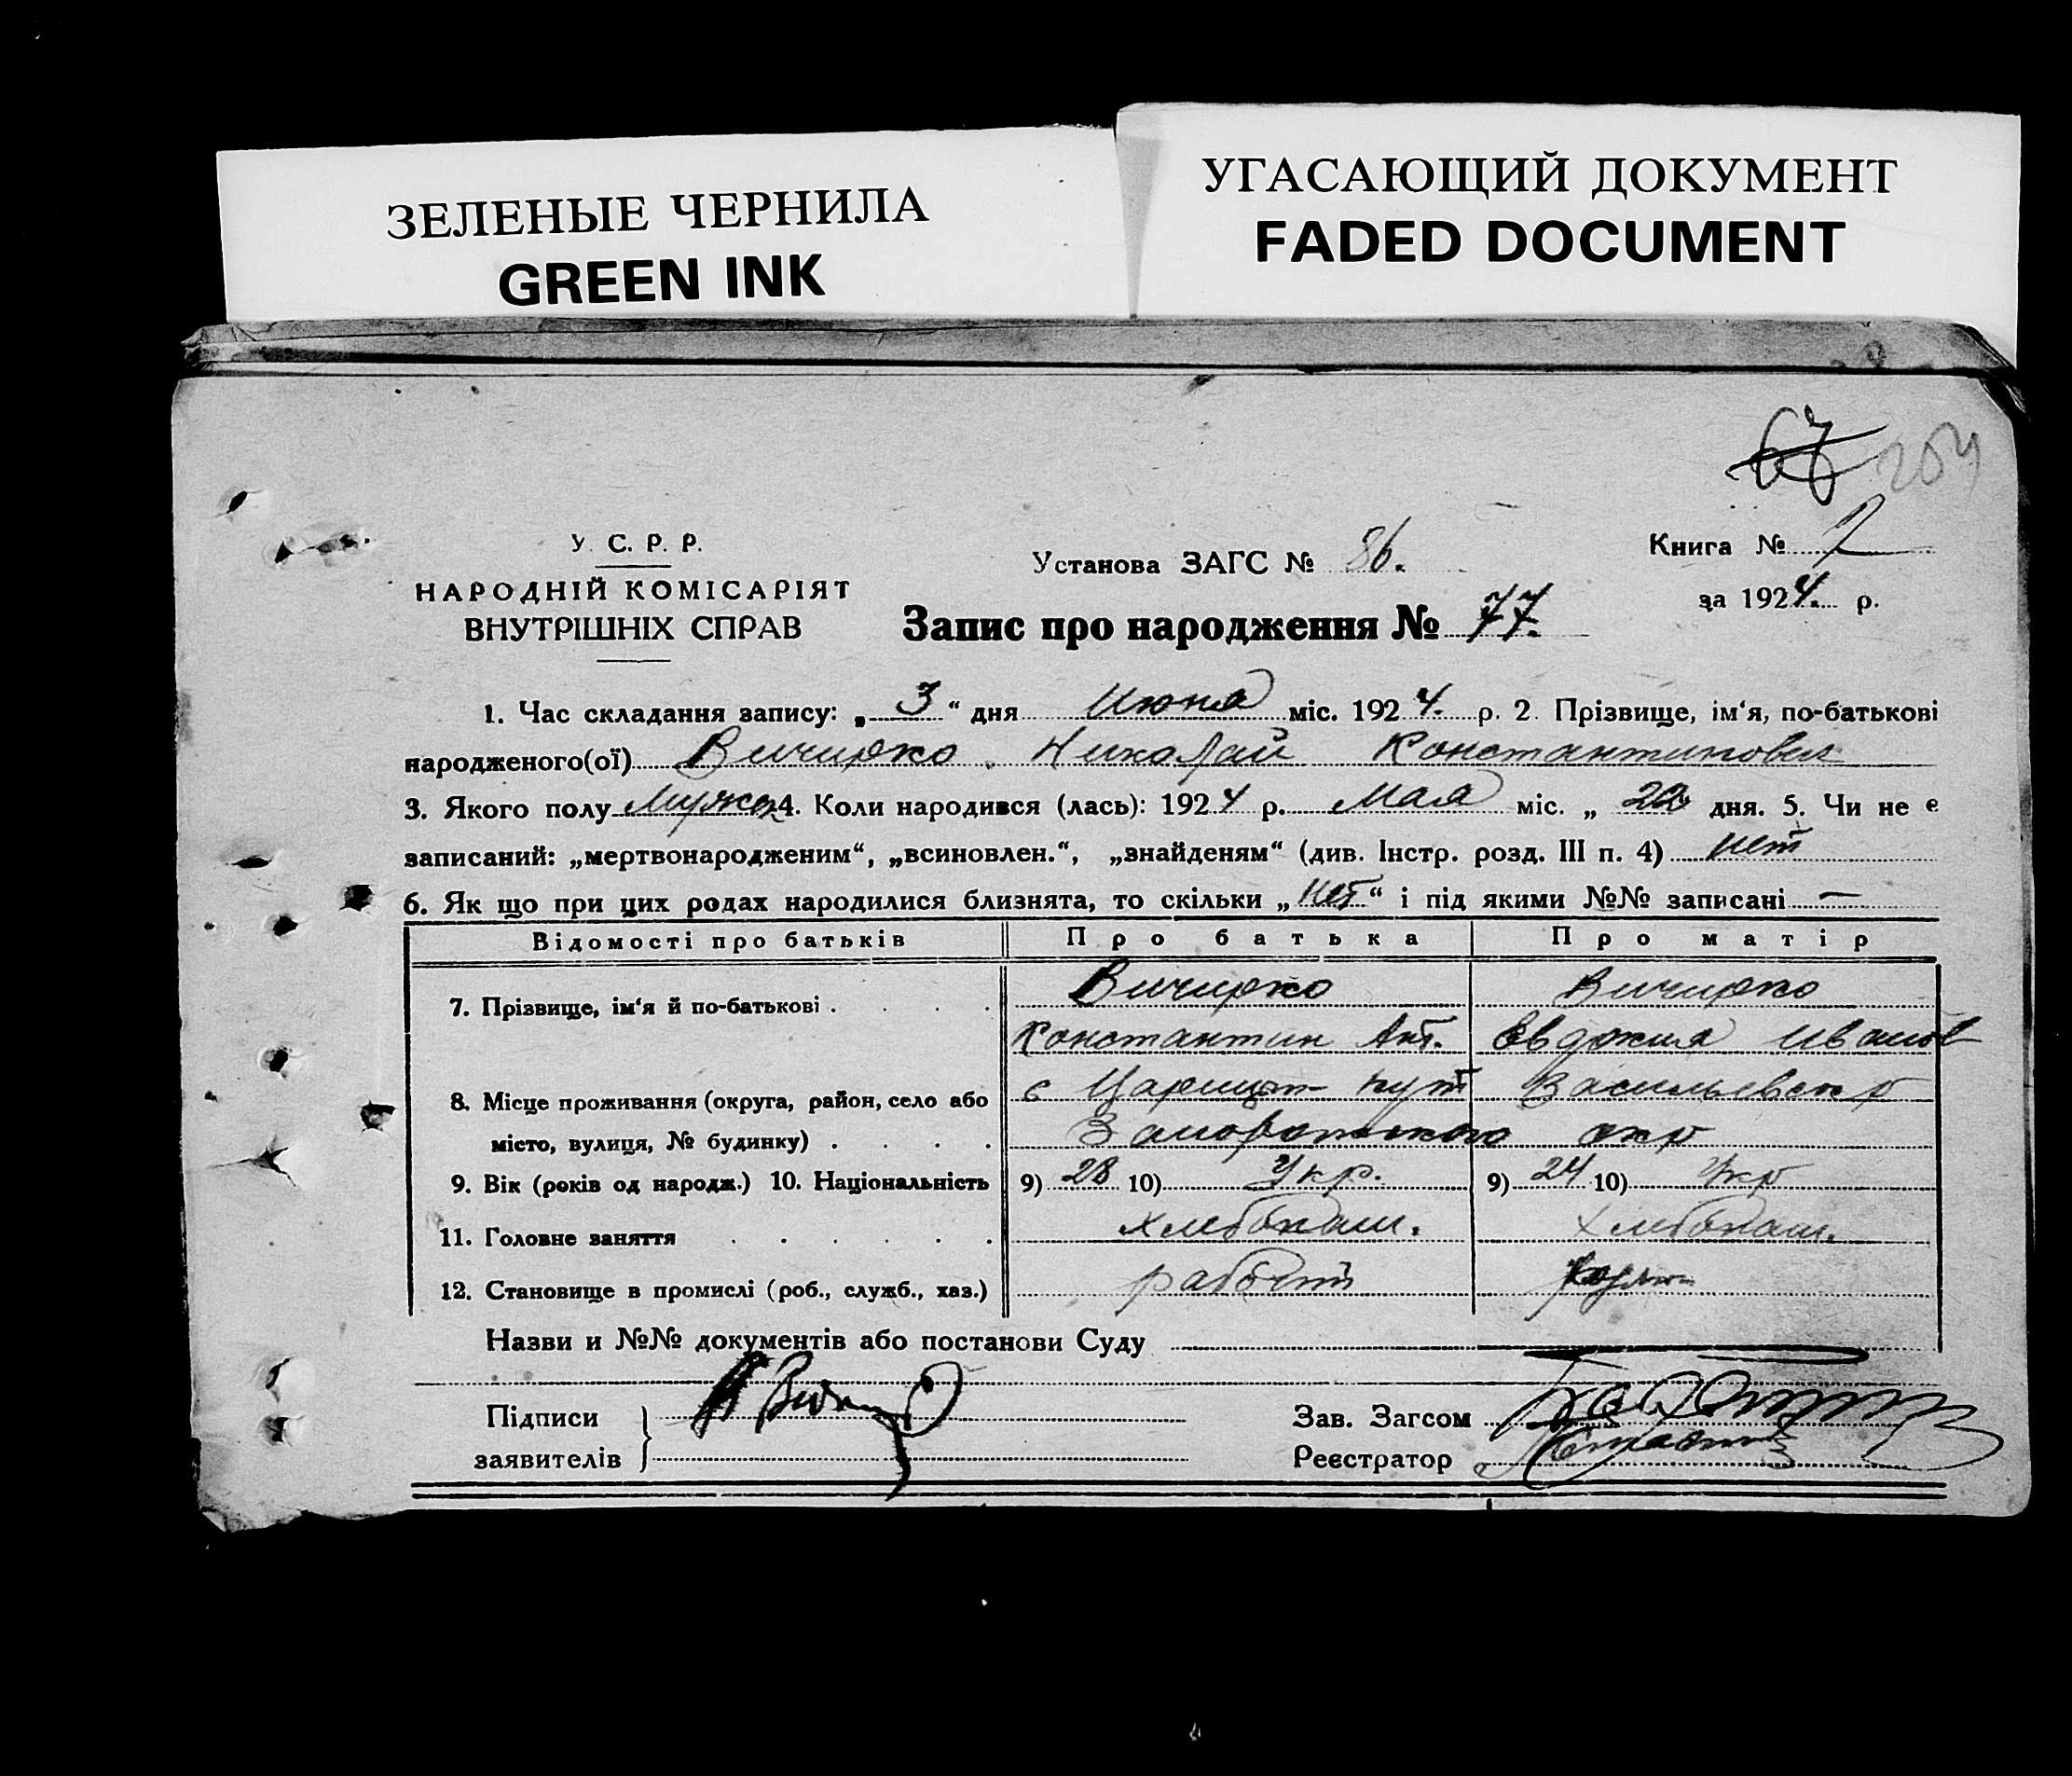 ЗЕЛЕНЫЕ ЧЕРНИЛА
GREEN INK
УГАСАЮЩИЙ ДОКУМЕНТ
FADED DOCUMENT
67 204
У. С. Р. Р.
НАРОДНІЙ КОМІСАРІЯТ
ВНУТРІШНІХ СПРАВ
Установа ЗАГС № 86.
Запис про народження № 77.
Книга № 2
за 1924. р.
1. Час складання запису: „ 3 “ дня Июня міс. 1924. р. 2. Прізвище, ім‘я, по-батькові
народженого(ої) Вичирко Николай Константинович
3. Якого полу Мужск 4. Коли народився (лась): 1924 р. Мая міс. „ 22 дня. 5. Чи не є
записаний: „мертвонародженим“, „всиновлен.“, „знайденям“ (див. Інстр. розд. III п. 4) нет
6. Як що при цих родах народилися близнята, то скільки „нет“ і під якими №№ записані —
Відомості про батьків Про батька Про матір
7. Прізвище, ім‘я й по-батькові . . . . Вичирко Вичирко
Константин Ант. Евдокия Иванов
8. Місце проживання (округа, район, село або с Царицын кут Васильевск р
місто, вулиця, № будинку) . . . . Запорожского окр
9. Вік (років од народж.) 10. Національність 9) 28 10) Укр. 9) 24 10) Укр
11. Головне заняття . . . . . . хлебопаш. хлебопаш.
12. Становище в промислі (роб., служб., хаз.)
Назви и №№ документів або постанови Суду
Підписи
заявителів
Зав. Загсом
Реєстратор